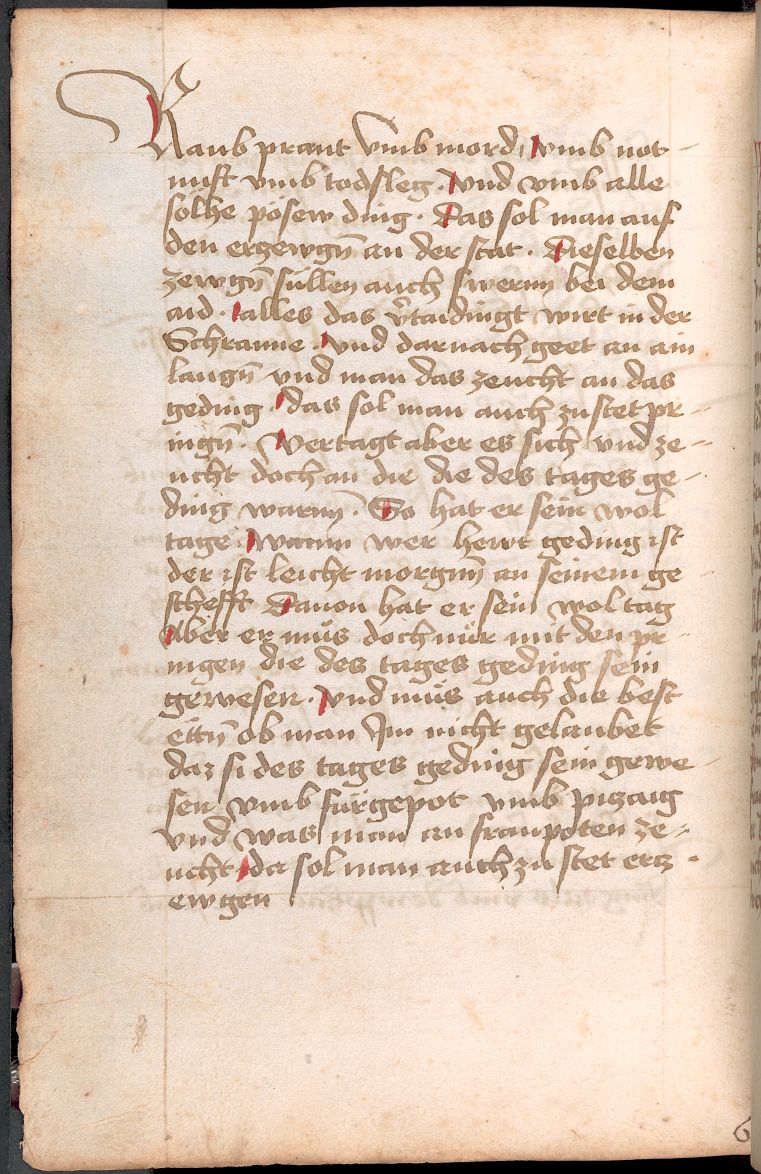 Raub prant vmb mord, vmb not-
nuft vmb todsleg. vnd vmb alle
sölhe pösew ding. das sol man auf
den erzewgn̄ an der stat. dieselben
zewgn̄ süllen auch swernn bei dem
aid. alles das v̄taidingt wirt in der
Schranne. vnd darnach geet an ain
laugn̄ vnd man das zeucht an das
geding. das sol man auch zu stet pr-
ingn̄. vertagt aber es sich vnd ze-
ucht doch an die die des tages ge-
ding warnn̄. So hat er sein wol
tage. wann wer hewt geding ist
der ist leicht morgnn̄ an seinem ge-
schefft dauon hat er sein wol tag
Aber er mus doch nür mit den pr-
ingen die des tages geding sein
gewesen. vnd müs auch die best
ettn̄ ob man Im nicht gelaubet
daz si des tages geding sein gewe-
sen vmb fürgepot vmb pizaig
vnd was man an franpoten ze-
ucht da sol man auch zu stet erz-
ewgen